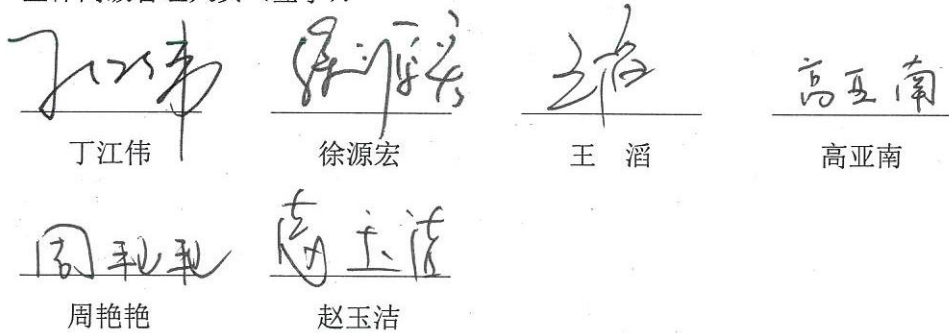 丁江伟 徐源宏 王滔 高亚南
丁江伟 徐源宏 王 滔 高亚南
周艳艳 赵玉洁
周艳艳 赵玉洁